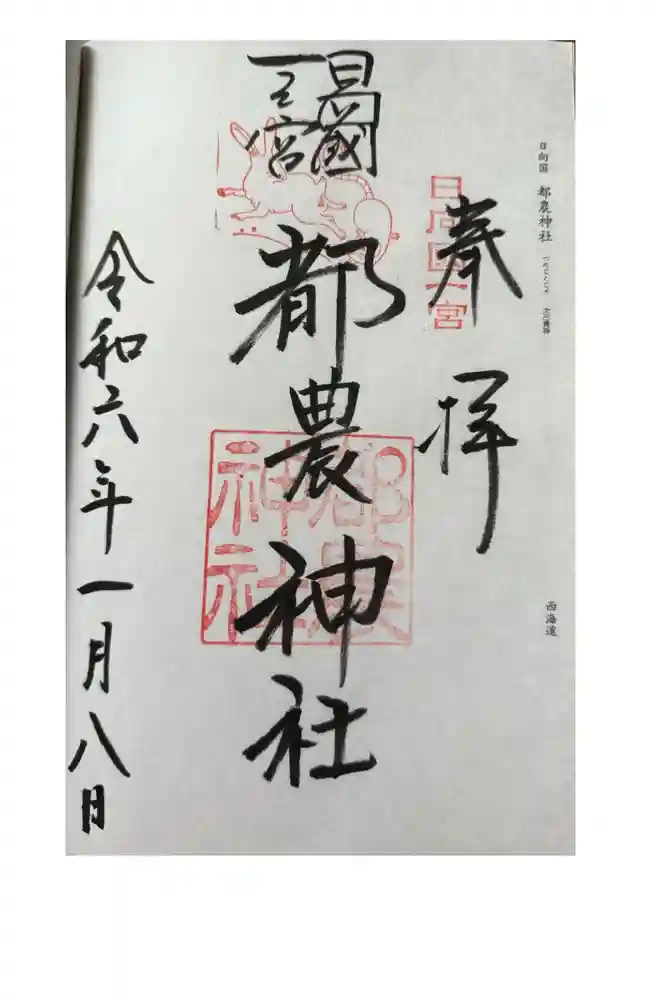 日向国 都農神社
西海道
奉拝
日向国一宮
日向國
一之宮
都農神社
都農神社
令和六年一月八日